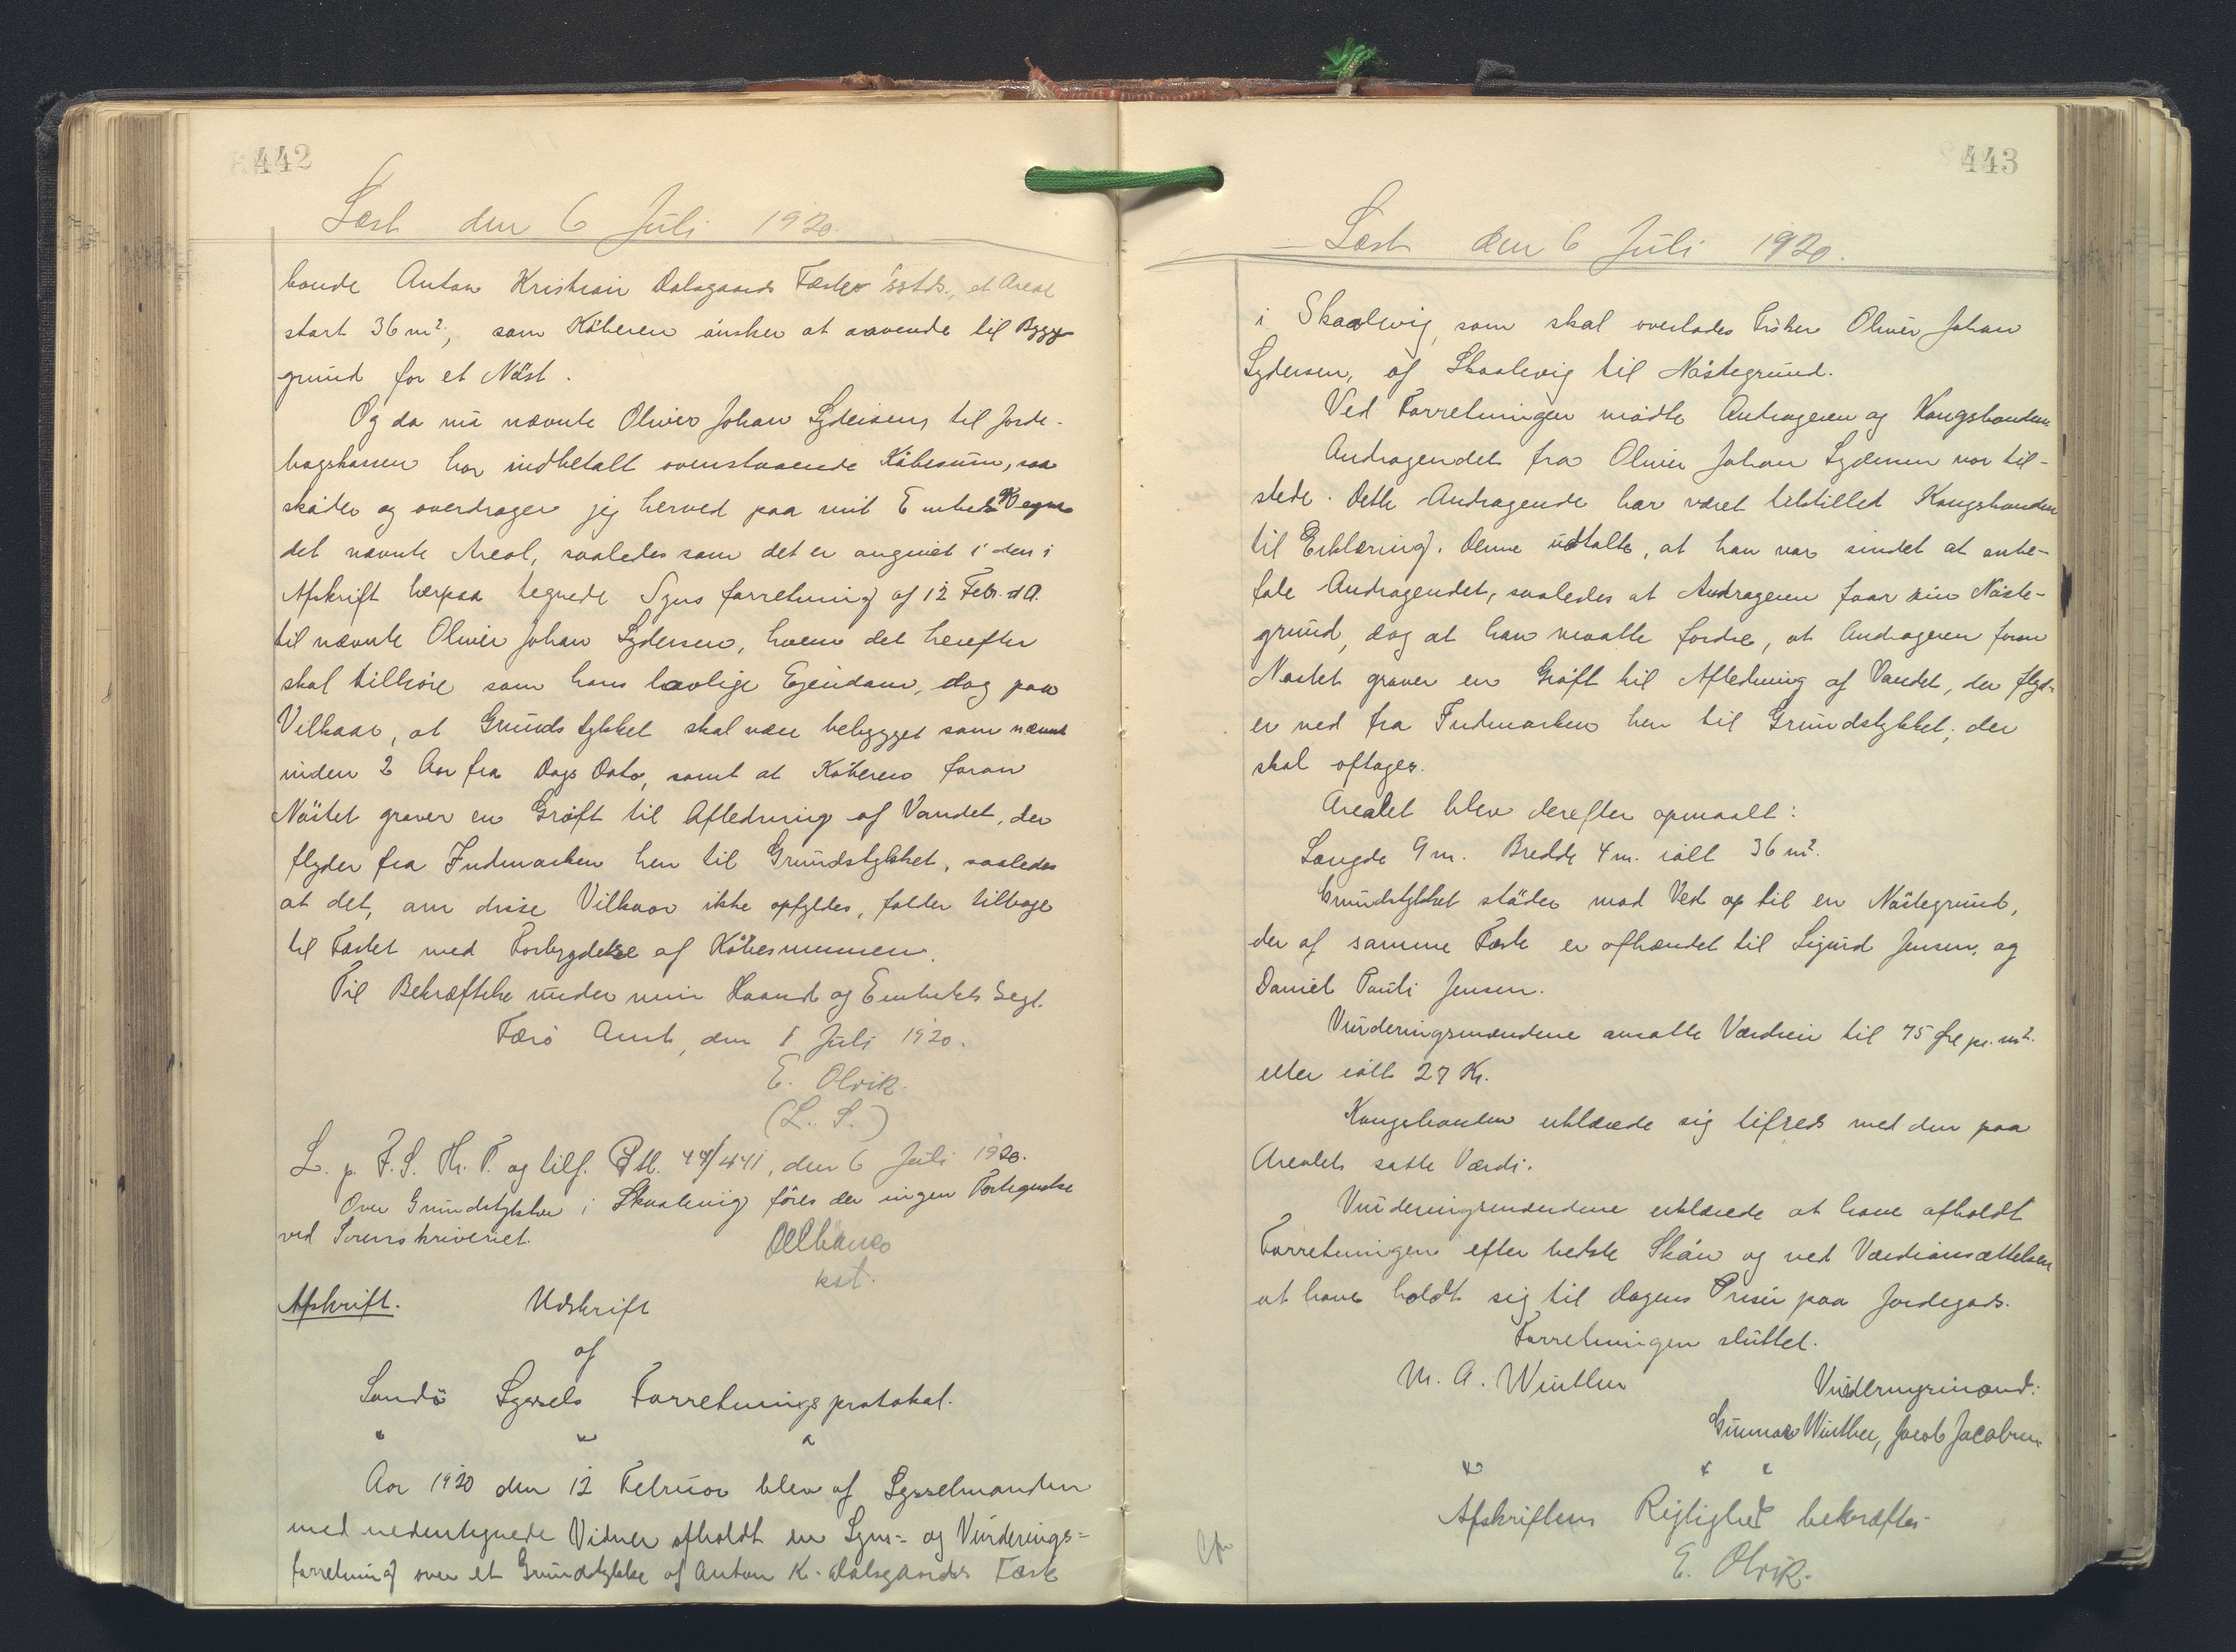 442
Læst den 6 Juli 1920.
bonde Anton Kristian Dalsgaards Fæste sstds., et Areal
stort 36 m², som Köberen önsker at anvende til Bygge-
grund for et Nöst.
Og da nu nævnte Oliver Johan Lydersen til Jorde-
bogskassen har indbetalt ovenstaaende Köbesum, saa
sköder og overdrager jeg herved paa mit Embeds Vegne
det nævnte Areal, saaledes som det er angivet i den i
Afskrift herpaa tegnede Synsforretning af 12 Febr. d.A.
til nævnte Oliver Johan Lydersen, hvem det herefter
skal tilhöre som hans lovlige Ejendom, dog paa
Vilkaar, at Grundstykket skal være bebygget som nævnt
inden 2 Aar fra Dags Dato, samt at Köberen foran
Nöstet graver en Gröft til Afledning af Vandet, der
flyder fra Indmarken hen til Grundstykket, saaledes
at det, om disse Vilkaar ikke opfyldes, falder tilbage
til Fæstet med Forbrydelse af Köbesummen.
Til Bekræftelse under min Haand og Embedets Segl.
Færö Amt, den 1 Juli 1920.
E. Olrik.
(L. S.)
L. p. F. S. Th. T. og tilf. Ptl. 44/441, den 6 Juli 1920.
Over Grundstykker i Skaalevig föres der ingen Fortegnelse
ved Sorenskriveriet.
kst.
Afskrift. Udskrift
af
Sandö Syssels Forretningsprotokol.
" " "
Aar 1920 den 12 Februar blev af Sysselmanden
med nedentegnede Vidner afholdt en Syns- og Vurderings-
forretning over et Grundstykke af Anton K. Dalsgaards Fæste
443
Læst den 6 Juli 1920.
i Skaalevig, som skal overlades Fisker Oliver Johan
Lydersen, af Skaalevig til Nöstegrund.
Ved Forretningen mödte Andrageren og Kongsbonden
Andragendet fra Oliver Johan Lydersen var til-
stede. Dette Andragende har været tilstillet Kongsbonden
til Erklæring. Denne udtalte, at han var sindet at anbe-
fale Andragendet, saaledes at Andrageren faar sin Nöste-
grund, dog at han maatte fordre, at Andrageren foran
Nöstet graver en Gröft til Afledning af Vandet, der flyd-
er ned fra Indmarken hen til Grundstykket, der
skal aftages.
Arealet blev derefter opmaalt:
Længde 9 m. Bredde 4 m. ialt 36 m².
Grundstykket stöder mod Vest op til en Nöstegrund,
der af samme Fæste er afhændet til Sigurd Jensen, og
Daniel Pauli Jensen.
Vurderingsmændene ansatte Værdien til 75 Øre pr. m².
eller ialt 27 Kr.
Kongsbonden erklærede sig tilfreds med den paa
Arealet satte Værdi.
Vurderingsmændene erklærede at have afholdt
Forretningen efter bedste Skön og ved Værdiansættelsen
at have holdt sig til Dagens Priser paa Jordegods.
Forretningen sluttet.
M. A. Winther Vurderingsmænd:
Gunnar Winther, Jacob Jacobsen
" " "
Afskriftens Rigtighed bekræftes
E. Olrik.